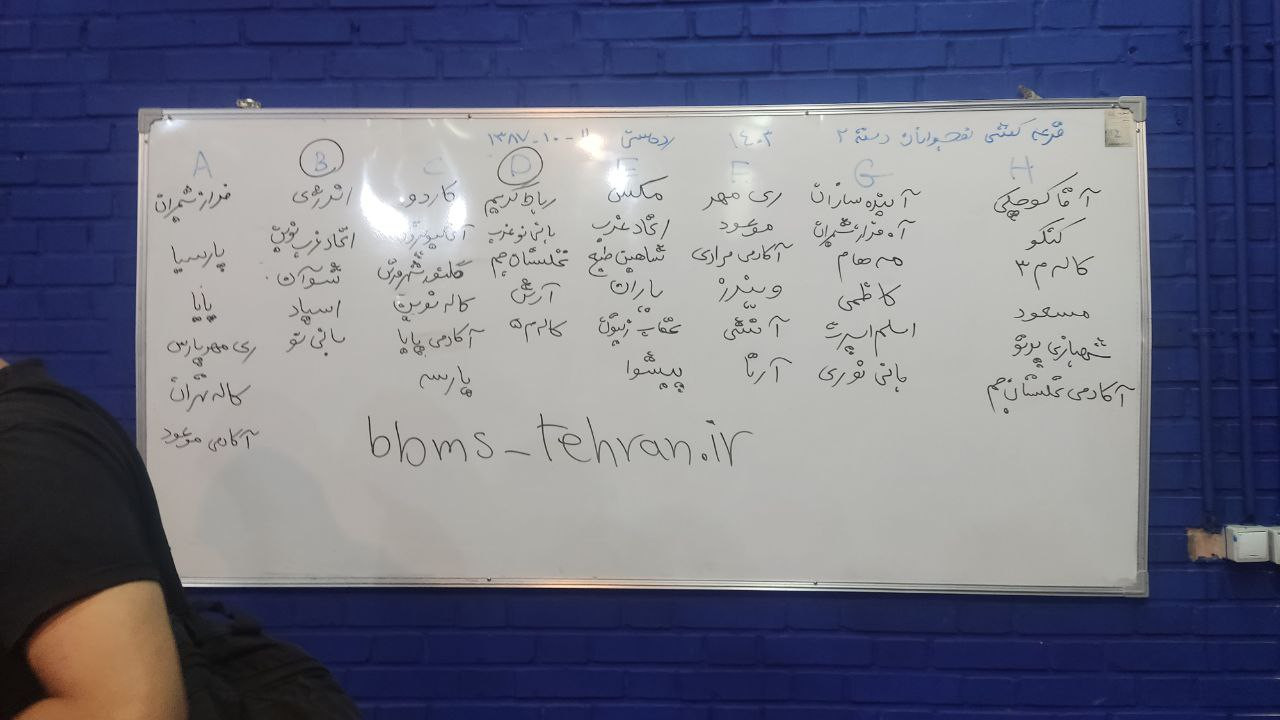 قرعه کشی نونهالان دسته ۲ ۱۴۰۳ رده سنی ۱۱-۱۰-۱۳۸۷
A B C D E F G H
فراز شمیران
پارسیا
پاپا
ری مهر پارس
کاله تهران
آکادمی موعود
انرژی
اتحاد غرب نوین
شوآن
اسپاد
بانی نو
کاردو
گلشور شهر قدس
کاله نوین
آکادمی پاپا
پارسه
رباط کریم
بانی نو غرب
نخلستان جم
آرش
کاله م ۵
مکس
اتحاد غرب
شاهین طبع
باران
عقاب
پیشوا
ری مهر
موعود
آکادمی مرادی
ویندرز
آتشی
آرتا
آینده سازان
آ. فراز شمیران
مه هام
کاظمی
اسلم اسپرت
بانی نوری
آقا کوچکی
کنکو
کاله م ۳
مسعود
شهبازی پرتو
آکادمی نخلستان جم
bbms-tehran.ir